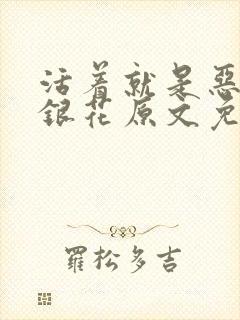 活着就是惡
銀花原文免
羅松多吉